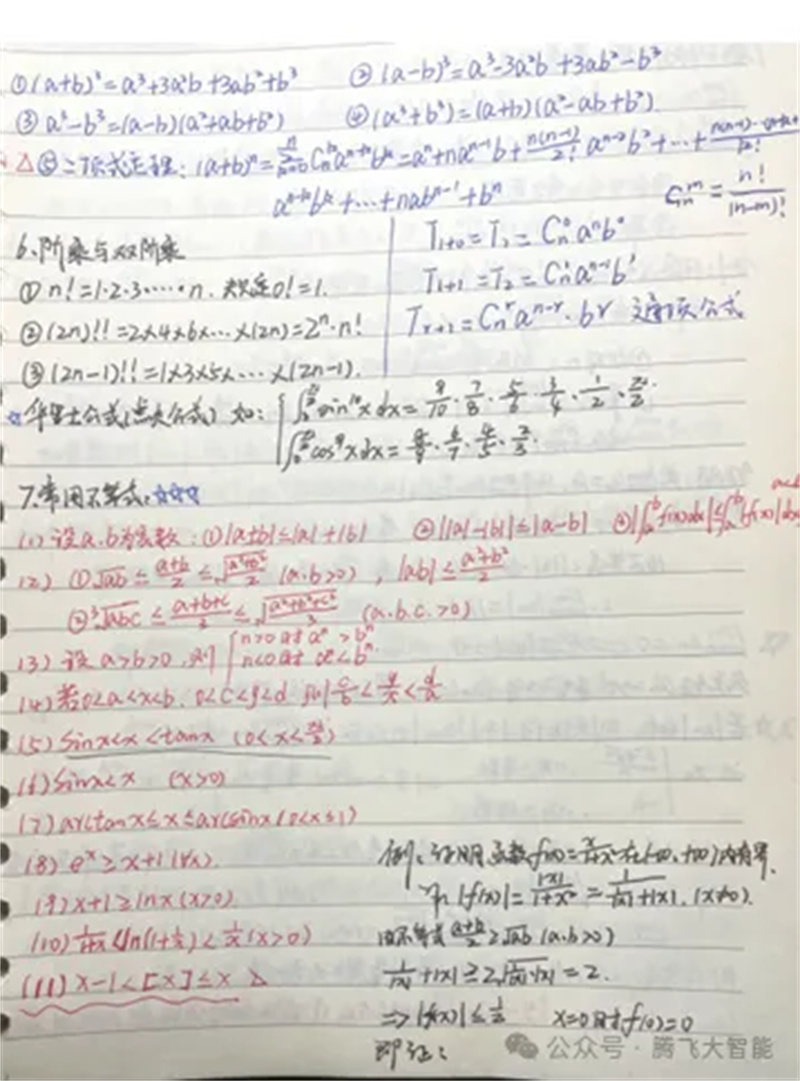 ①(a+b)³=a³+3a²b+3ab²+b³ ②(a-b)³=a³-3a²b+3ab²-b³
③a³-b³=(a-b)(a²+ab+b²) ④(a³+b³)=(a+b)(a²-ab+b²)
△⑤二项式定理:(a+b)ⁿ=∑Cₙᵏaⁿ⁻ᵏbᵏ=aⁿ+naⁿ⁻¹b+n(n-1)/2! aⁿ⁻²b²+…+
aⁿ⁻ᵏbᵏ+…+nabⁿ⁻¹+bⁿ Cₙᵐ=n!/(n-m)!
6.阶乘与双阶乘
①n!=1·2·3·····n. 规定0!=1.
②(2n)!!=2×4×6×…×(2n)=2ⁿ·n!
③(2n-1)!!=1×3×5×…×(2n-1).
T₁₊₀=T₁=Cₙ⁰aⁿb⁰
T₁₊₁=T₂=Cₙ¹aⁿ⁻¹b¹
Tᵣ₊₁=Cₙʳaⁿ⁻ʳ·bʳ 通项公式
☆华里士公式(点火公式) 如: ∫₀^(π/2) sin¹⁰x dx=9/10·7/8·5/6·3/4·1/2·π/2.
∫₀^(π/2) cos⁹x dx=8/9·6/7·4/5·2/3.
7.常用不等式:☆☆☆
(1)设a.b为实数:①|a+b|≤|a|+|b| ②||a|-|b||≤|a-b| ③|∫ₐᵇf(x)dx|≤∫ₐᵇ|f(x)|dx
(2)①√ab≤(a+b)/2≤√((a²+b²)/2) (a.b>0), |ab|≤(a²+b²)/2
②³√abc≤(a+b+c)/3≤√((a²+b²+c²)/3) (a.b.c.>0)
(3)设a>b>0,则{n>0时aⁿ>bⁿ
n<0时aⁿ<bⁿ.
(4)若0<a<x<b.0<c<y<d 则a/d<x/y<b/c
(5)sinx<x<tanx (0<x<π/2)
(6)sinx<x (x>0)
(7)arctanx≤x≤arcsinx(0≤x≤1)
(8)eˣ≥x+1(∀x)
(9)x-1≥lnx(x>0)
(10)1/(1+x)<ln(1+1/x)<1/x(x>0)
(11)x-1<[x]≤x △
例:证明函数f(x)=x/(1+x²)在(-∞,+∞)内有界.
|f(x)|=|x|/(1+x²)=1/(1/|x|+|x|).(x≠0).
由不等式(a+b)/2≥√ab(a.b>0)
1/|x|+|x|≥2√(1/|x|·|x|)=2.
⇒|f(x)|≤1/2 x=0时f(0)=0
即证:
公众号·腾飞大智能